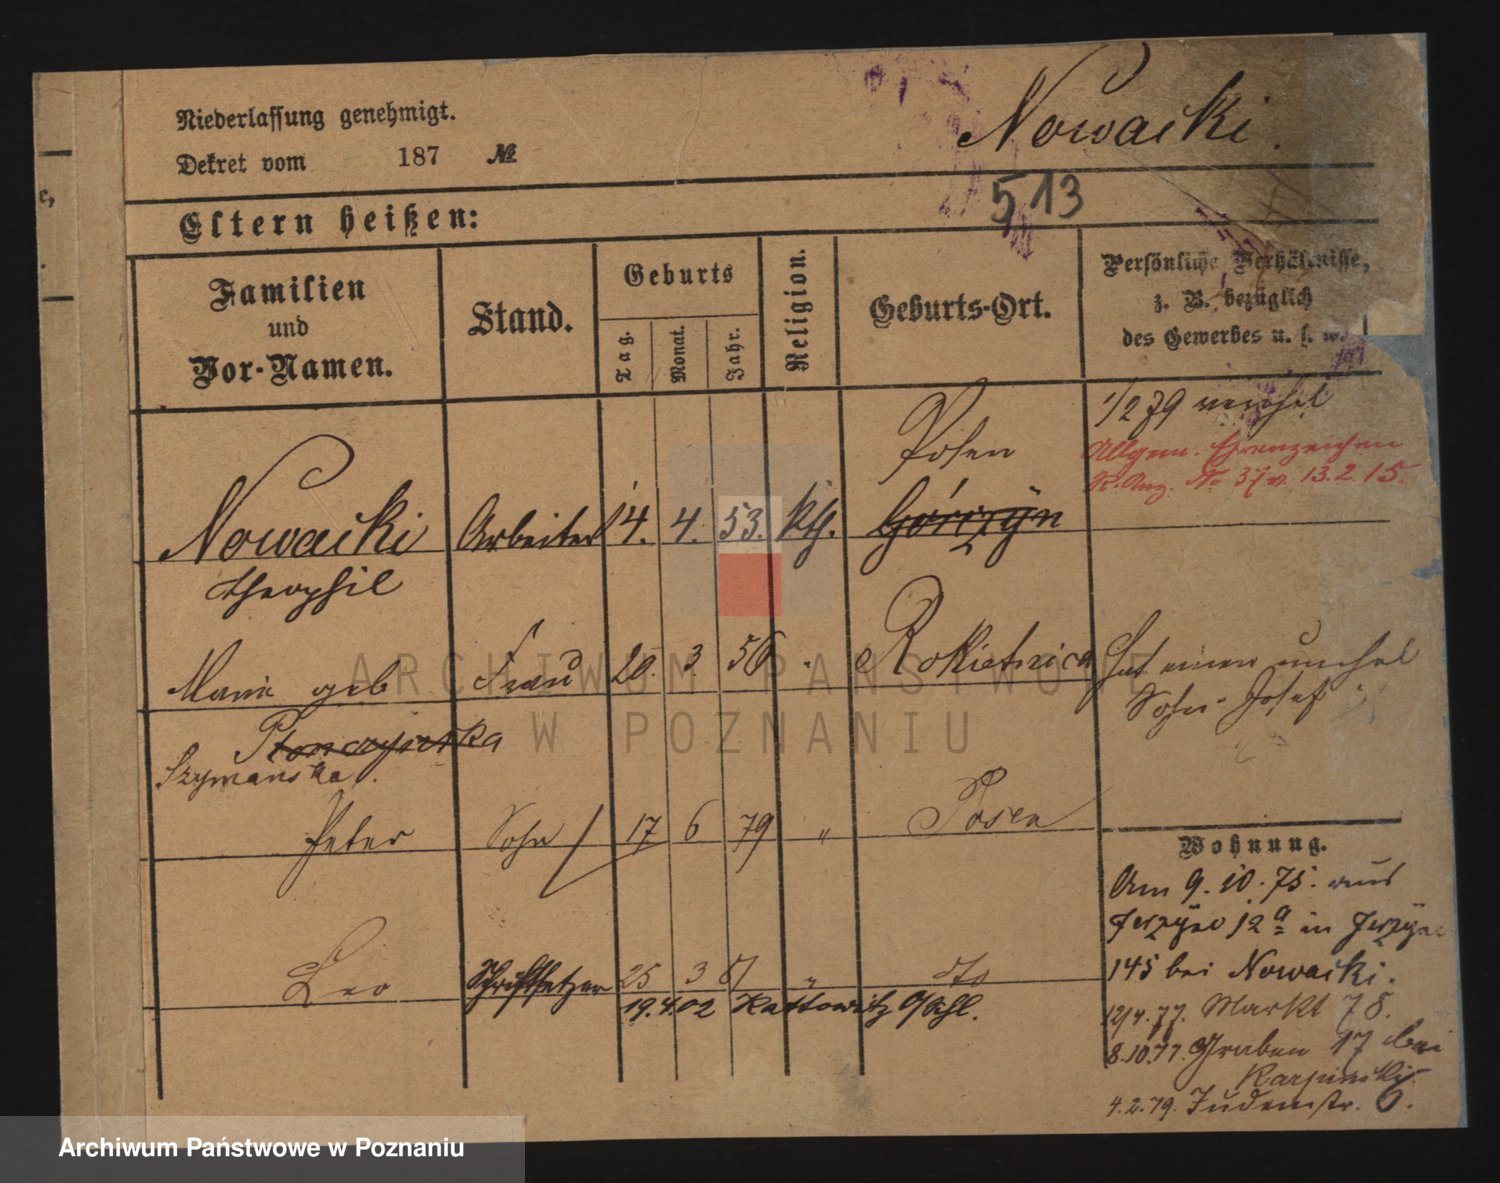 Niederlassung genehmigt.
Nowacki.
Dekret vom 187 №
513
Eltern heißen:
Familien und Vor-Namen.
Stand.
Geburts
Tag.
Monat.
Jahr.
Religion.
Geburts-Ort.
Persönliche Verhältnisse,
z. B. bezüglich
des Gewerbes u. s. w.
1/2 79
Posen
Allgem. Ehrenzeichen
No 37 v. 13.2.15.
Nowacki Arbeiter 14. 4. 53. kth. Górczÿn
Theophil
Maria geb Frau 20. 3. 56 Rokietnica
Hat einen unehel
Sohn Josef
Szymanska.
Peter Sohn 17 6 79 " Posen
Wohnung.
Am 9.10.75. aus
Jerzÿce 12a in Jerzÿce
145 bei Nowacki.
Leo Schriftsetzer 25 3 81 " dto
19.4.02 Kattowitz O/Schl.
12/4.77. Markt 78.
8.10.77. Graben 17 bei
Karpinski.
4.2.79. Judenstr. 6.
e,
ARCHIWUM PAŃSTWOWE
W POZNANIU
Archiwum Państwowe w Poznaniu